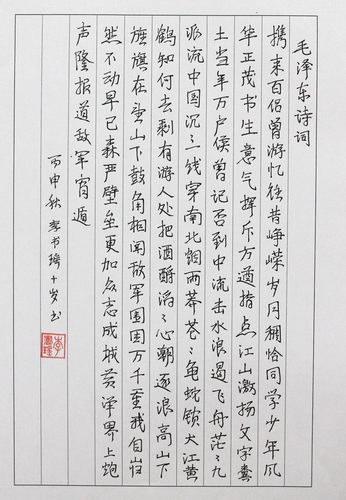 毛泽东诗词
携来百侣曾游忆往昔峥嵘岁月稠恰同学少年风
华正茂书生意气挥斥方遒指点江山激扬文字粪
土当年万户侯曾记否到中流击水浪遏飞舟茫〻九
派流中国沉〻一线穿南北烟雨莽苍〻龟蛇锁大江黄
鹤知何去剩有游人处把酒酹滔〻心潮逐浪高山下
旌旗在望山下鼓角相闻敌军围困万千重我自岿
然不动早已森严壁垒更加众志成城黄洋界上炮
声隆报道敌军宵遁
丙申秋 李书 十岁书